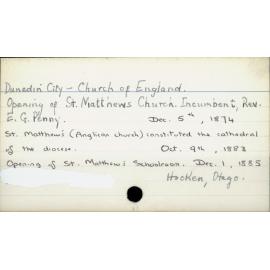 Dunedin City - Church of England.
Opening of St. Matthews Church. Incumbent, Rev.
E. G. Penny. Dec. 5th, 1874
St. Matthews (Anglican church) constituted the cathedral
of the diocese. Oct. 9th, 1883
Opening of St. Matthews Schoolroom. Dec. 1, 1885
Hocken, Otago.